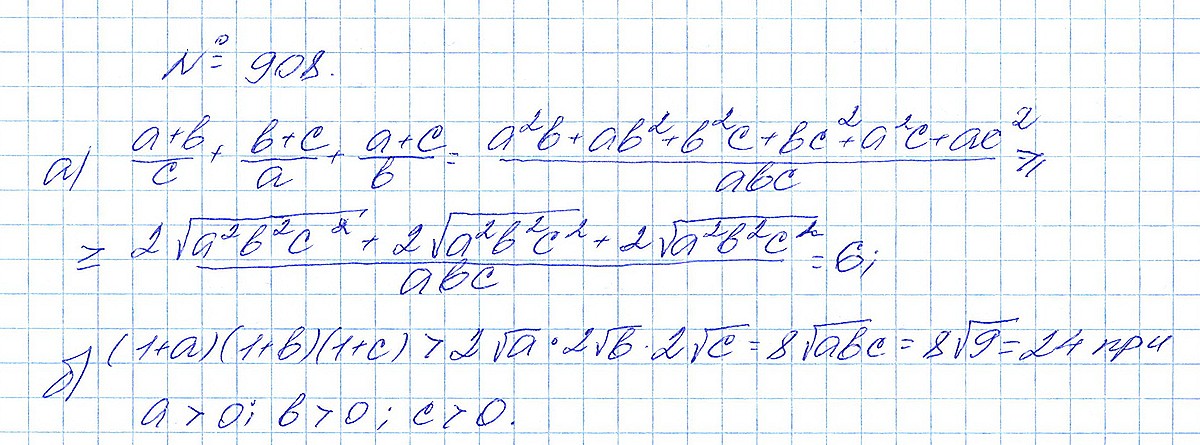 № 908.
а) (a+b)/c + (b+c)/a + (a+c)/b = (a²b+ab²+b²c+bc²+a²c+ac²)/abc ≥
≥ (2√(a²b²c²) + 2√(a²b²c²) + 2√(a²b²c²))/abc = 6;
б) (1+a)(1+b)(1+c) > 2√a · 2√b · 2√c = 8√(abc) = 8√9 = 24 при
a > 0; b > 0; c > 0.